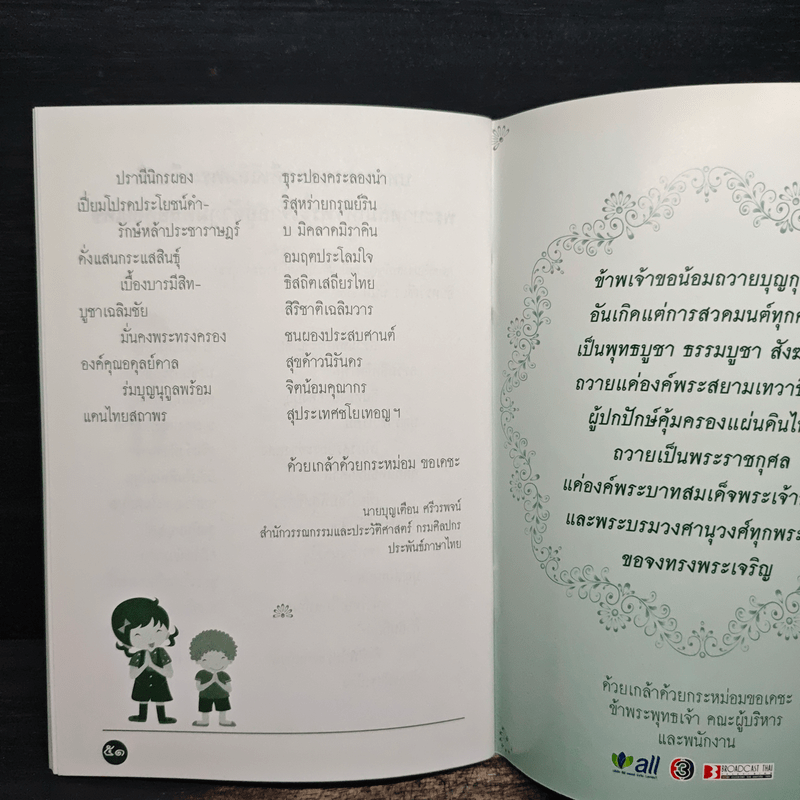 ปรานีนิกรผอง ธุระปองคระลองนำ
เปี่ยมโปรดประโยชน์ดำ- ริสุหร่ายกรุณย์ริน
รักษ์หล้าประชาราษฎร์ บ มิคลาดมิราคิน
ดั่งแสนกระแสสินธุ์ อมฤตประโลมใจ
เบื้องบารมีสิท- ธิสถิตเสถียรไทย
บูชาเฉลิมชัย สิริชาติเฉลิมวาร
มั่นคงพระทรงครอง ชนผองประสบศานต์
องค์คุณอดุลย์ดาล สุขด้าวนิรันดร
ร่มบุญนุกูลพร้อม จิตน้อมคุณากร
แดนไทยสถาพร สุประเทศชโยเทอญ ฯ
ด้วยเกล้าด้วยกระหม่อม ขอเดชะ
นายบุญเตือน ศรีวรพจน์
สำนักวรรณกรรมและประวัติศาสตร์ กรมศิลปกร
ประพันธ์ภาษาไทย
๕๑
ข้าพเจ้าขอน้อมถวายบุญกุ
อันเกิดแต่การสวดมนต์ทุก
เป็นพุทธบูชา ธรรมบูชา สังฆ
ถวายแด่องค์พระสยามเทวา
ผู้ปกปักษ์คุ้มครองแผ่นดินไท
ถวายเป็นพระราชกุศล
แด่องค์พระบาทสมเด็จพระเจ้า
และพระบรมวงศานุวงศ์ทุกพระ
ขอจงทรงพระเจริญ
ด้วยเกล้าด้วยกระหม่อมขอเดชะ
ข้าพระพุทธเจ้า คณะผู้บริหาร
และพนักงาน
all 3 B BROADCAST THAI